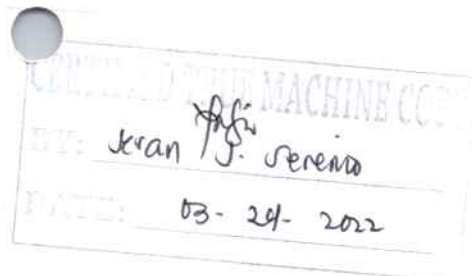 CERTIFIED TRUE MACHINE COPY
BY: J. Serenio
DATE: 03-24-2022